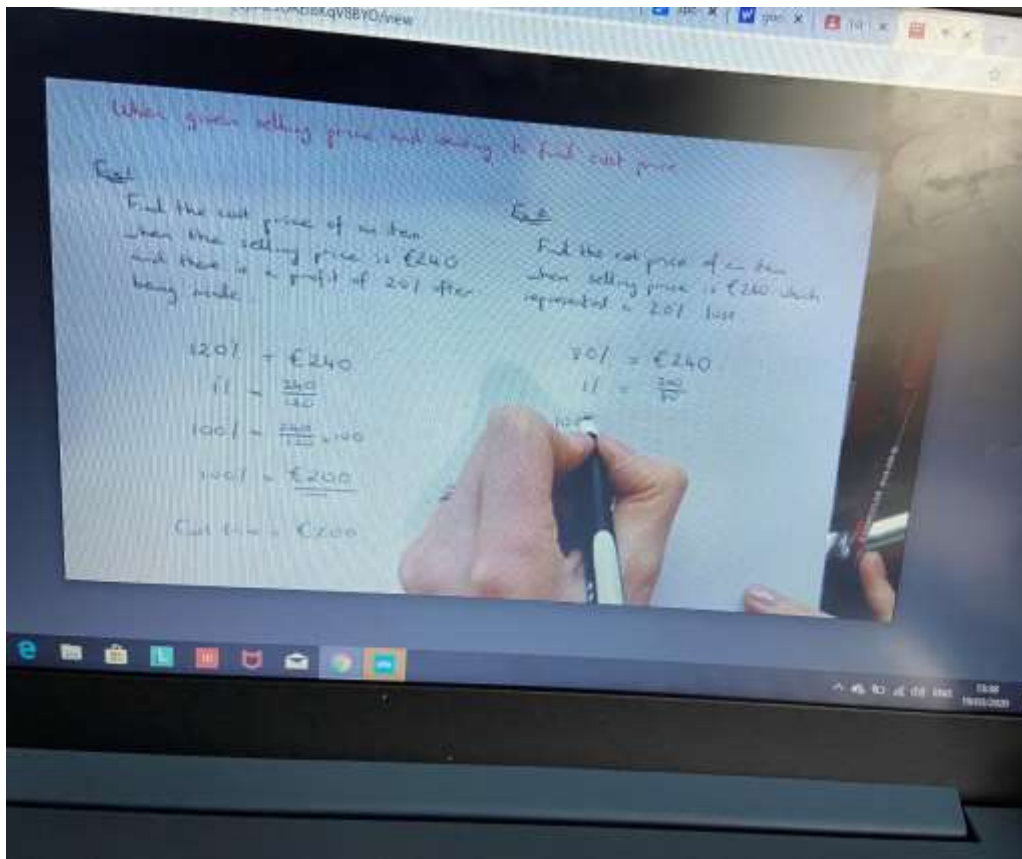 When given selling price and wanting to find cost price
Ex 1
Find the cost price of an item
when the selling price is €240
and there is a profit of 20% after
being made
120% = €240
1% = 240/120
100% = 240/120 × 100
100% = €200
Cost Price = €200
Ex 2
Find the cost price of an item
when selling price is €240 which
represented a 20% loss
80% = €240
1% = 240/80
100
19/03/2020